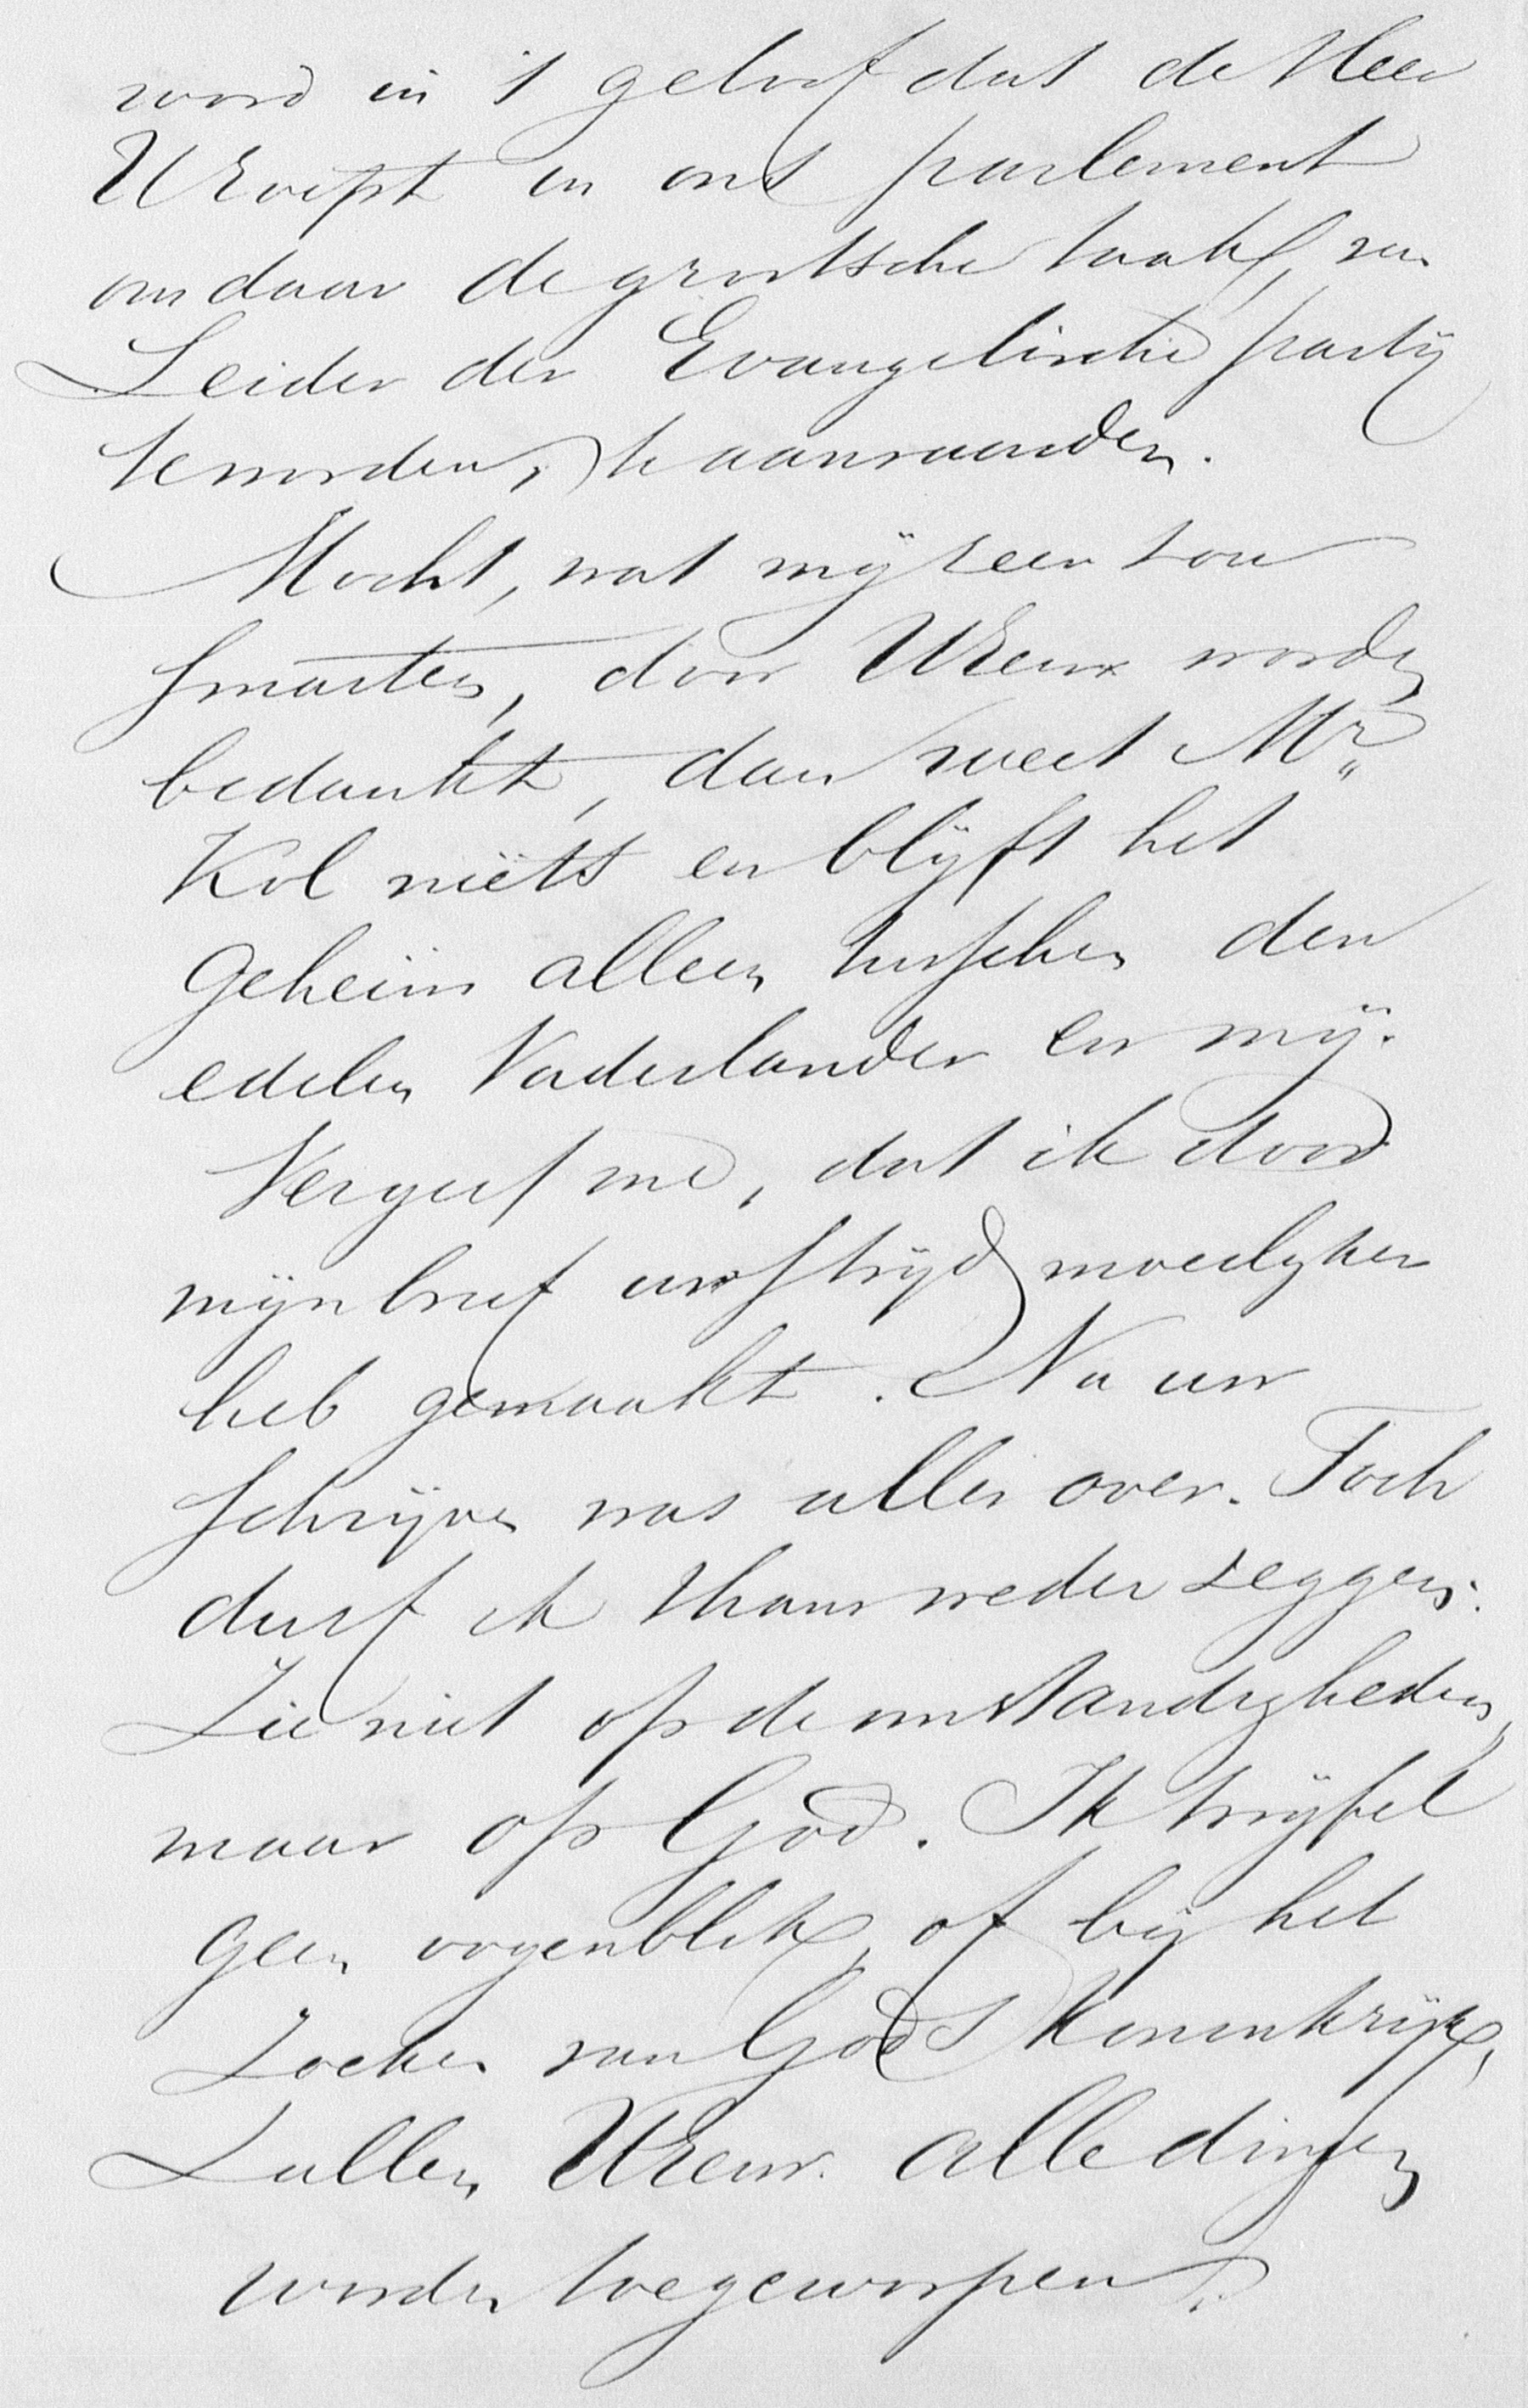 word in 't geloof dat de Heer
U roept in ons parlement
om daar de grootsche taak, van
Leider der Evangelische partij
te worden, te aanvaarden.
Mocht, wat mij zeer zou
smarten, door UEerw worden
bedankt, dan weet Mr
Kol niets en blijft het
geheim alleen tusschen den
edelen Vaderlander en mij.
Vergeef me, dat ik door
mijn brief uw strijd moeilijker
heb gemaakt. Na uw
schrijven was alles over. Toch
durf ik thans weder zeggen:
Zie niet op de omstandigheden,
maar op God. Ik twijfel
geen oogenblik, of bij het
Zoeken van Gods Koninkrijk,
Zullen UEerw. alle dingen
worden toegeworpen.